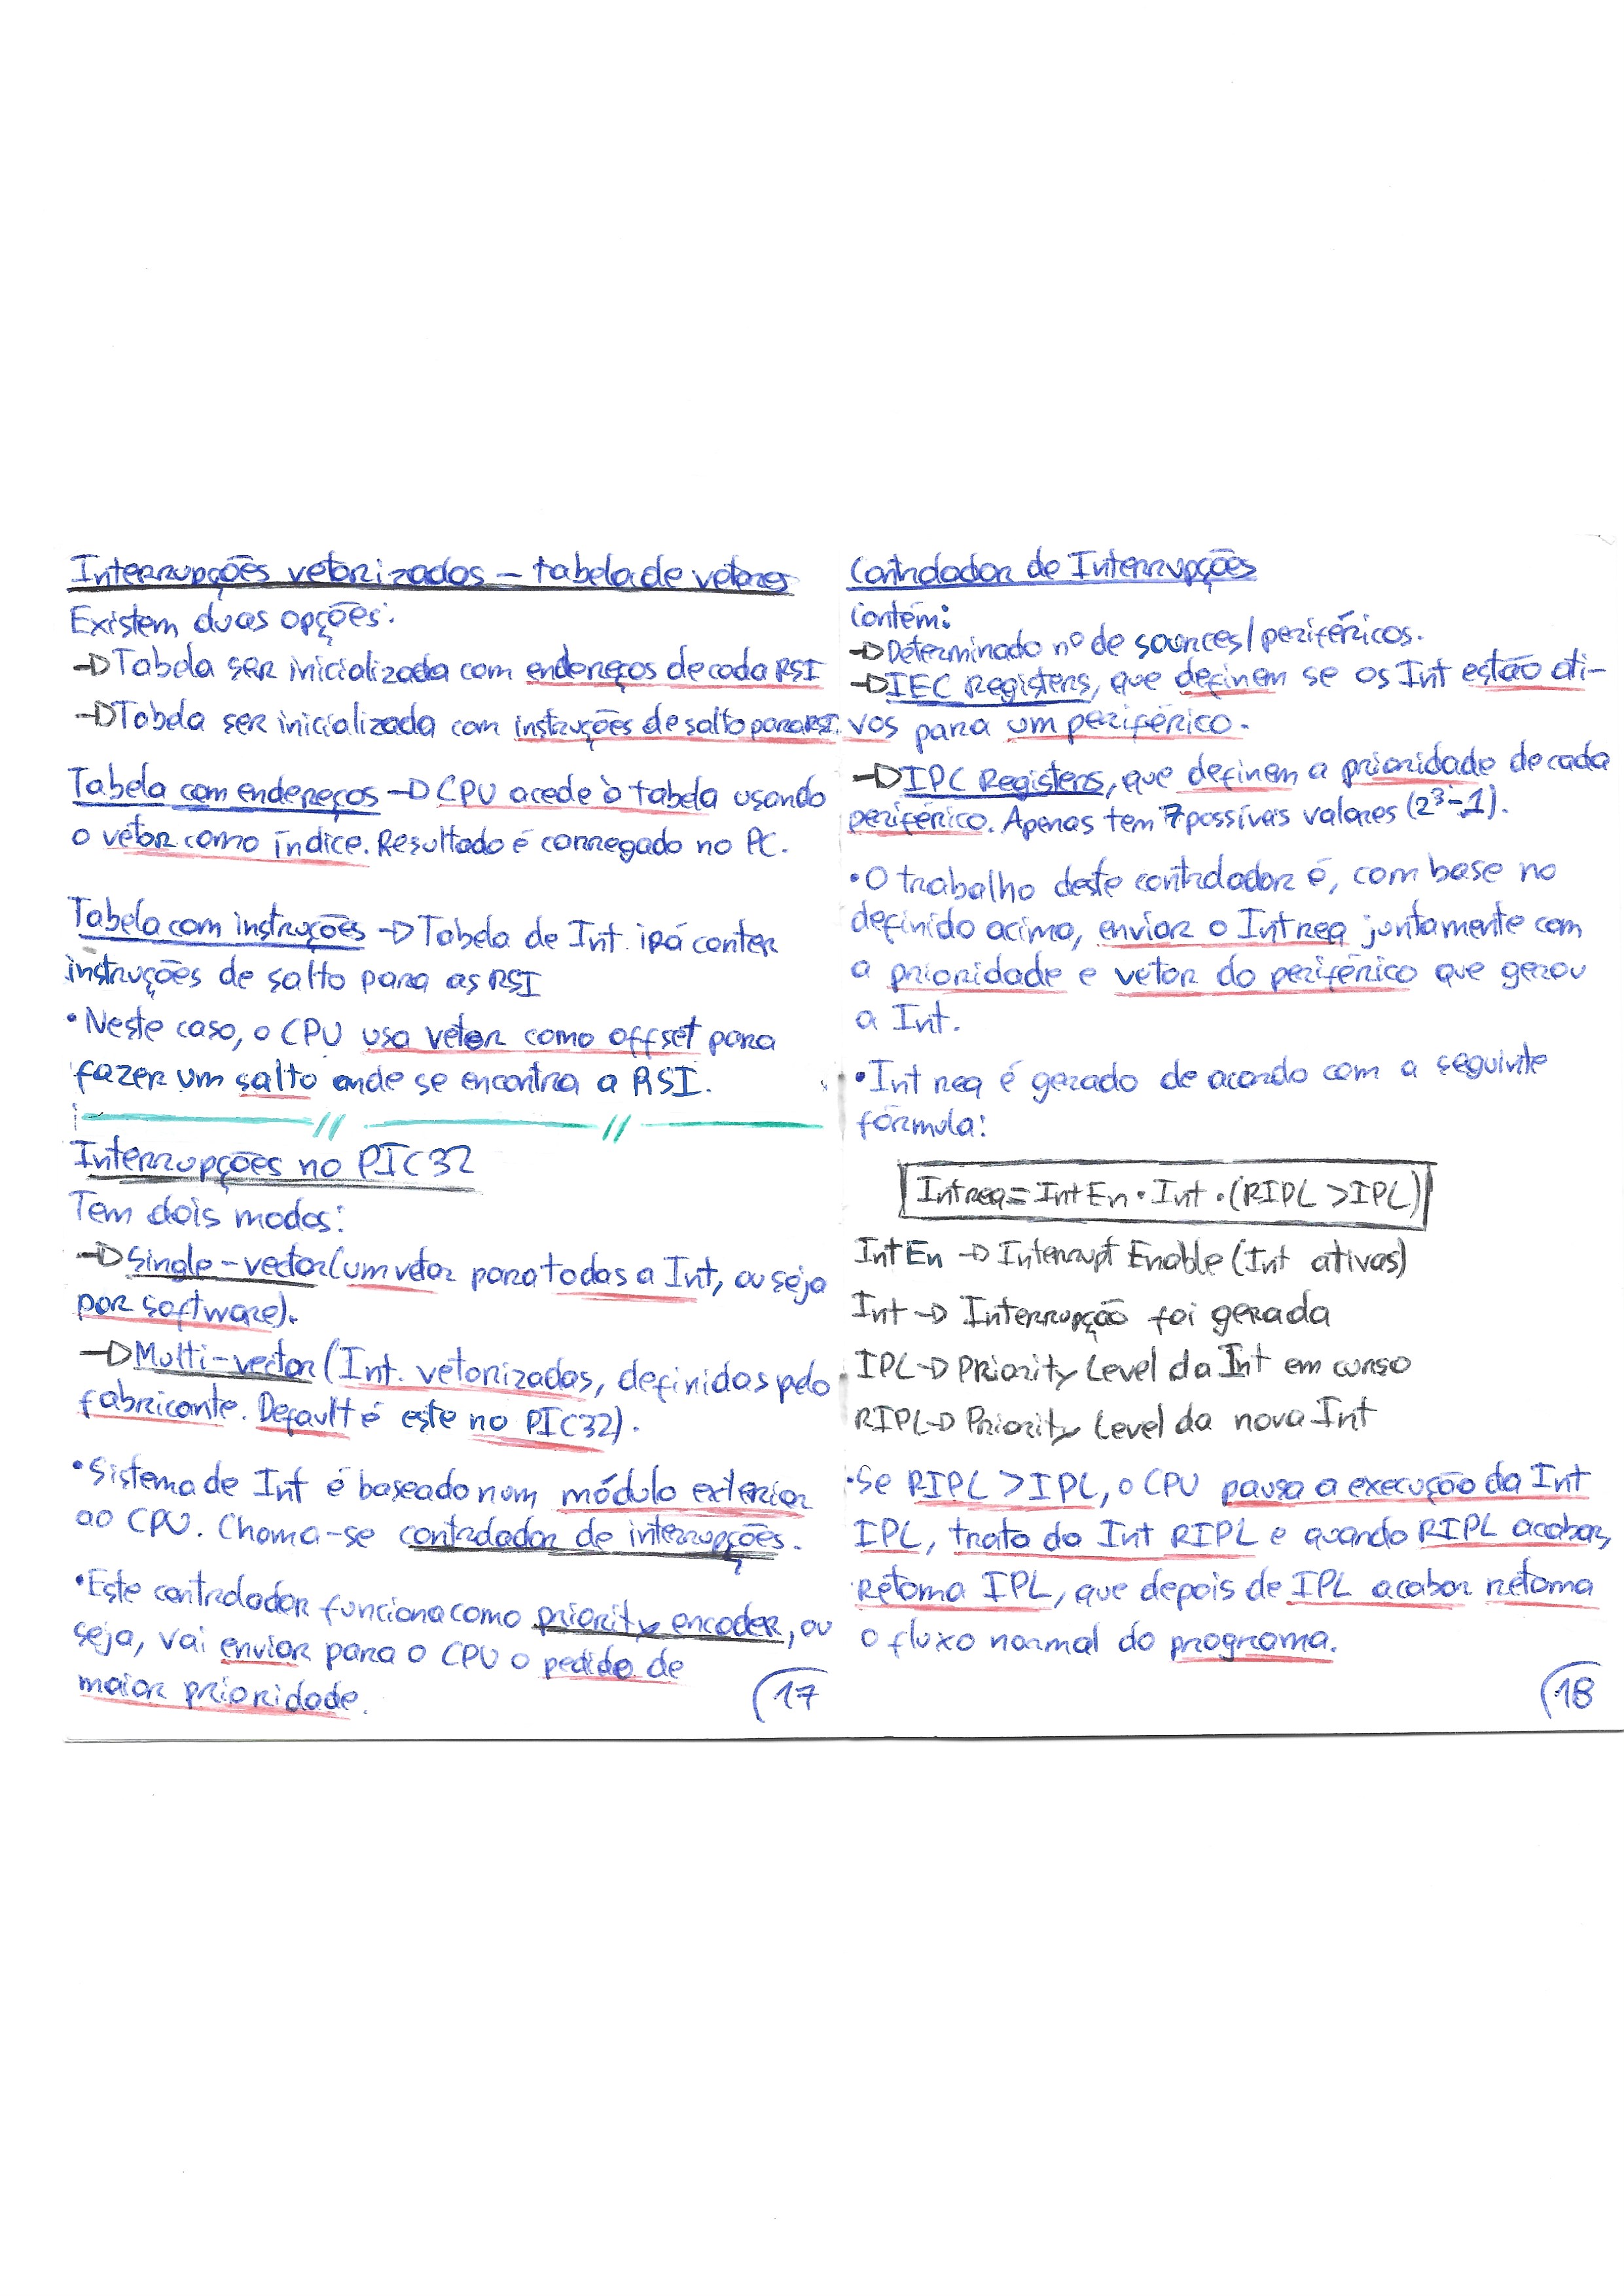 Interrupções vetorizados - tabela de vetores
Existem duas opções:
→ Tabela ser inicializada com endereços de cada RSI
→ Tabela ser inicializada com instruções de salto para RSI.
Tabela com endereços → CPU acede à tabela usando
o vetor como índice. Resultado é carregado no PC.
Tabela com instruções → Tabela de Int. irá conter
instruções de salto para as RSI
• Neste caso, o CPU usa vetor como offset para
fazer um salto onde se encontra a RSI.
Interrupções no PIC32
Tem dois modos:
→ Single-vector (um vetor para todas a Int, ou seja
por software).
→ Multi-vector (Int. vetorizadas, definidas pelo
fabricante. Default é este no PIC32).
• Sistema de Int é baseado num módulo exterior
ao CPU. Chama-se controlador de interrupções.
• Este controlador funciona como priority encoder, ou
seja, vai enviar para o CPU o pedido de
maior prioridade.
17
Controlador de Interrupções
Contém:
→ Determinado nº de sources/periféricos.
→ IEC Registers, que definem se os Int estão ati-
vos para um periférico.
→ IPC Registers, que definem a prioridade de cada
periférico. Apenas tem 7 possíveis valores (2³-1).
• O trabalho deste controlador é, com base no
definido acima, enviar o Int req juntamente com
a prioridade e vetor do periférico que gerou
a Int.
• Int req é gerado de acordo com a seguinte
fórmula:
Int req = Int En • Int • (RIPL > IPL)
Int En → Interrupt Enable (Int ativas)
Int → Interrupção foi gerada
IPL → Priority Level da Int em curso
RIPL → Priority Level da nova Int
• Se RIPL > IPL, o CPU pausa a execução da Int
IPL, trata do Int RIPL e quando RIPL acabar,
Retoma IPL, que depois de IPL acabar retoma
o fluxo normal do programa.
18